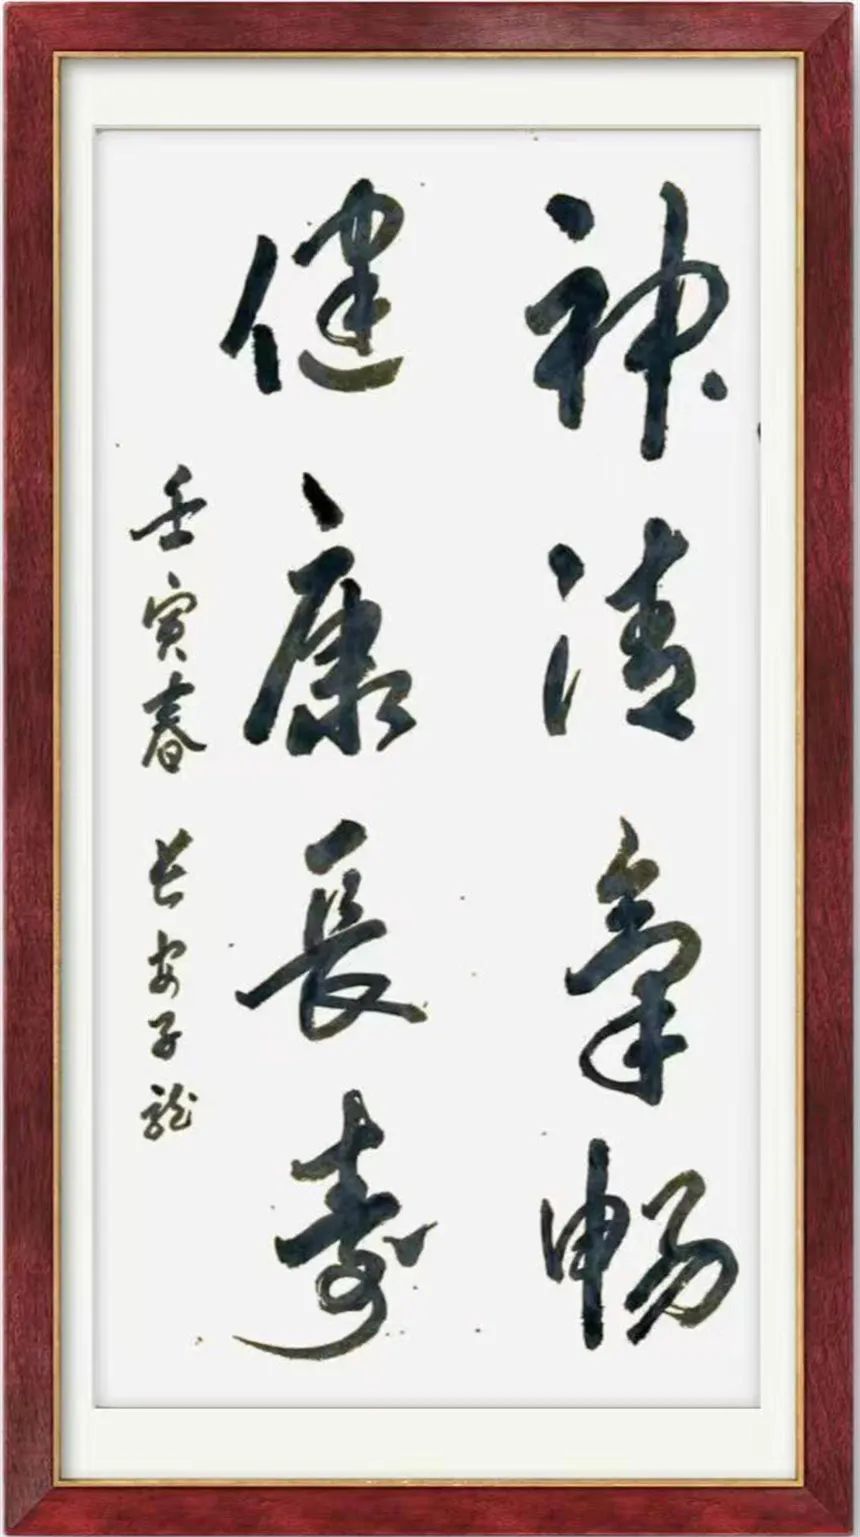 神清氣畅
健康長壽
壬寅春 长安子龍